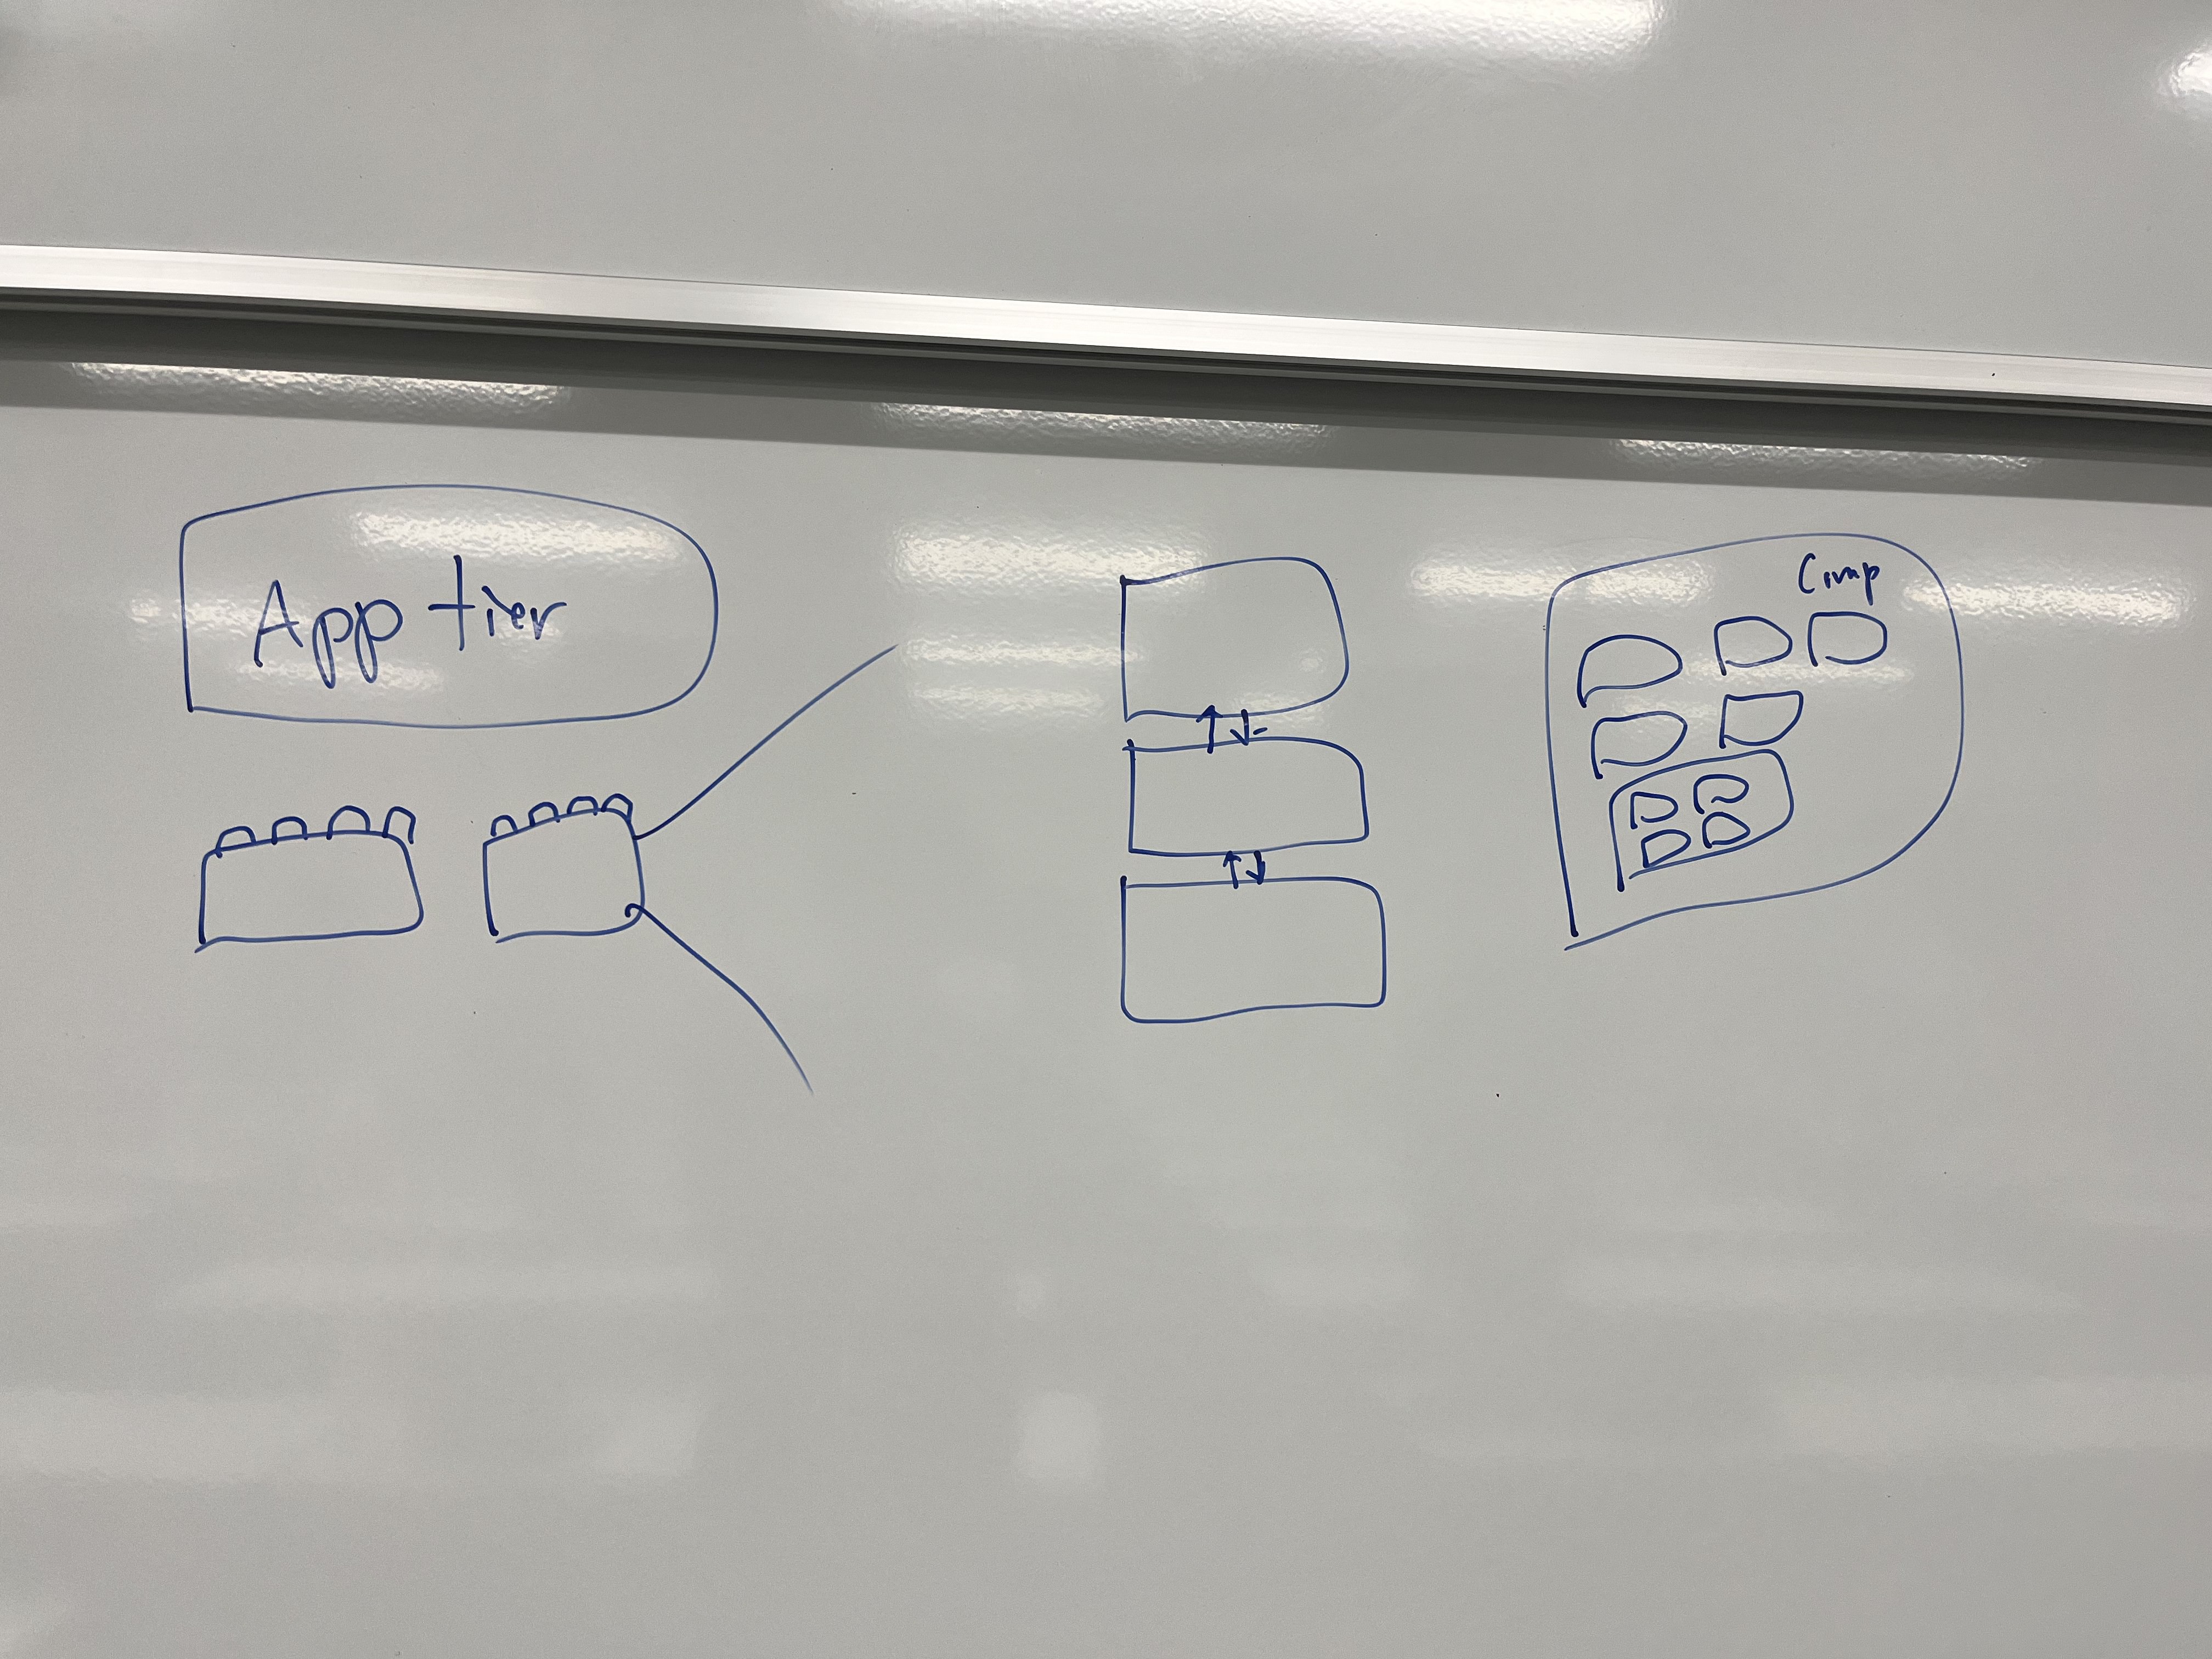 App tier
Comp